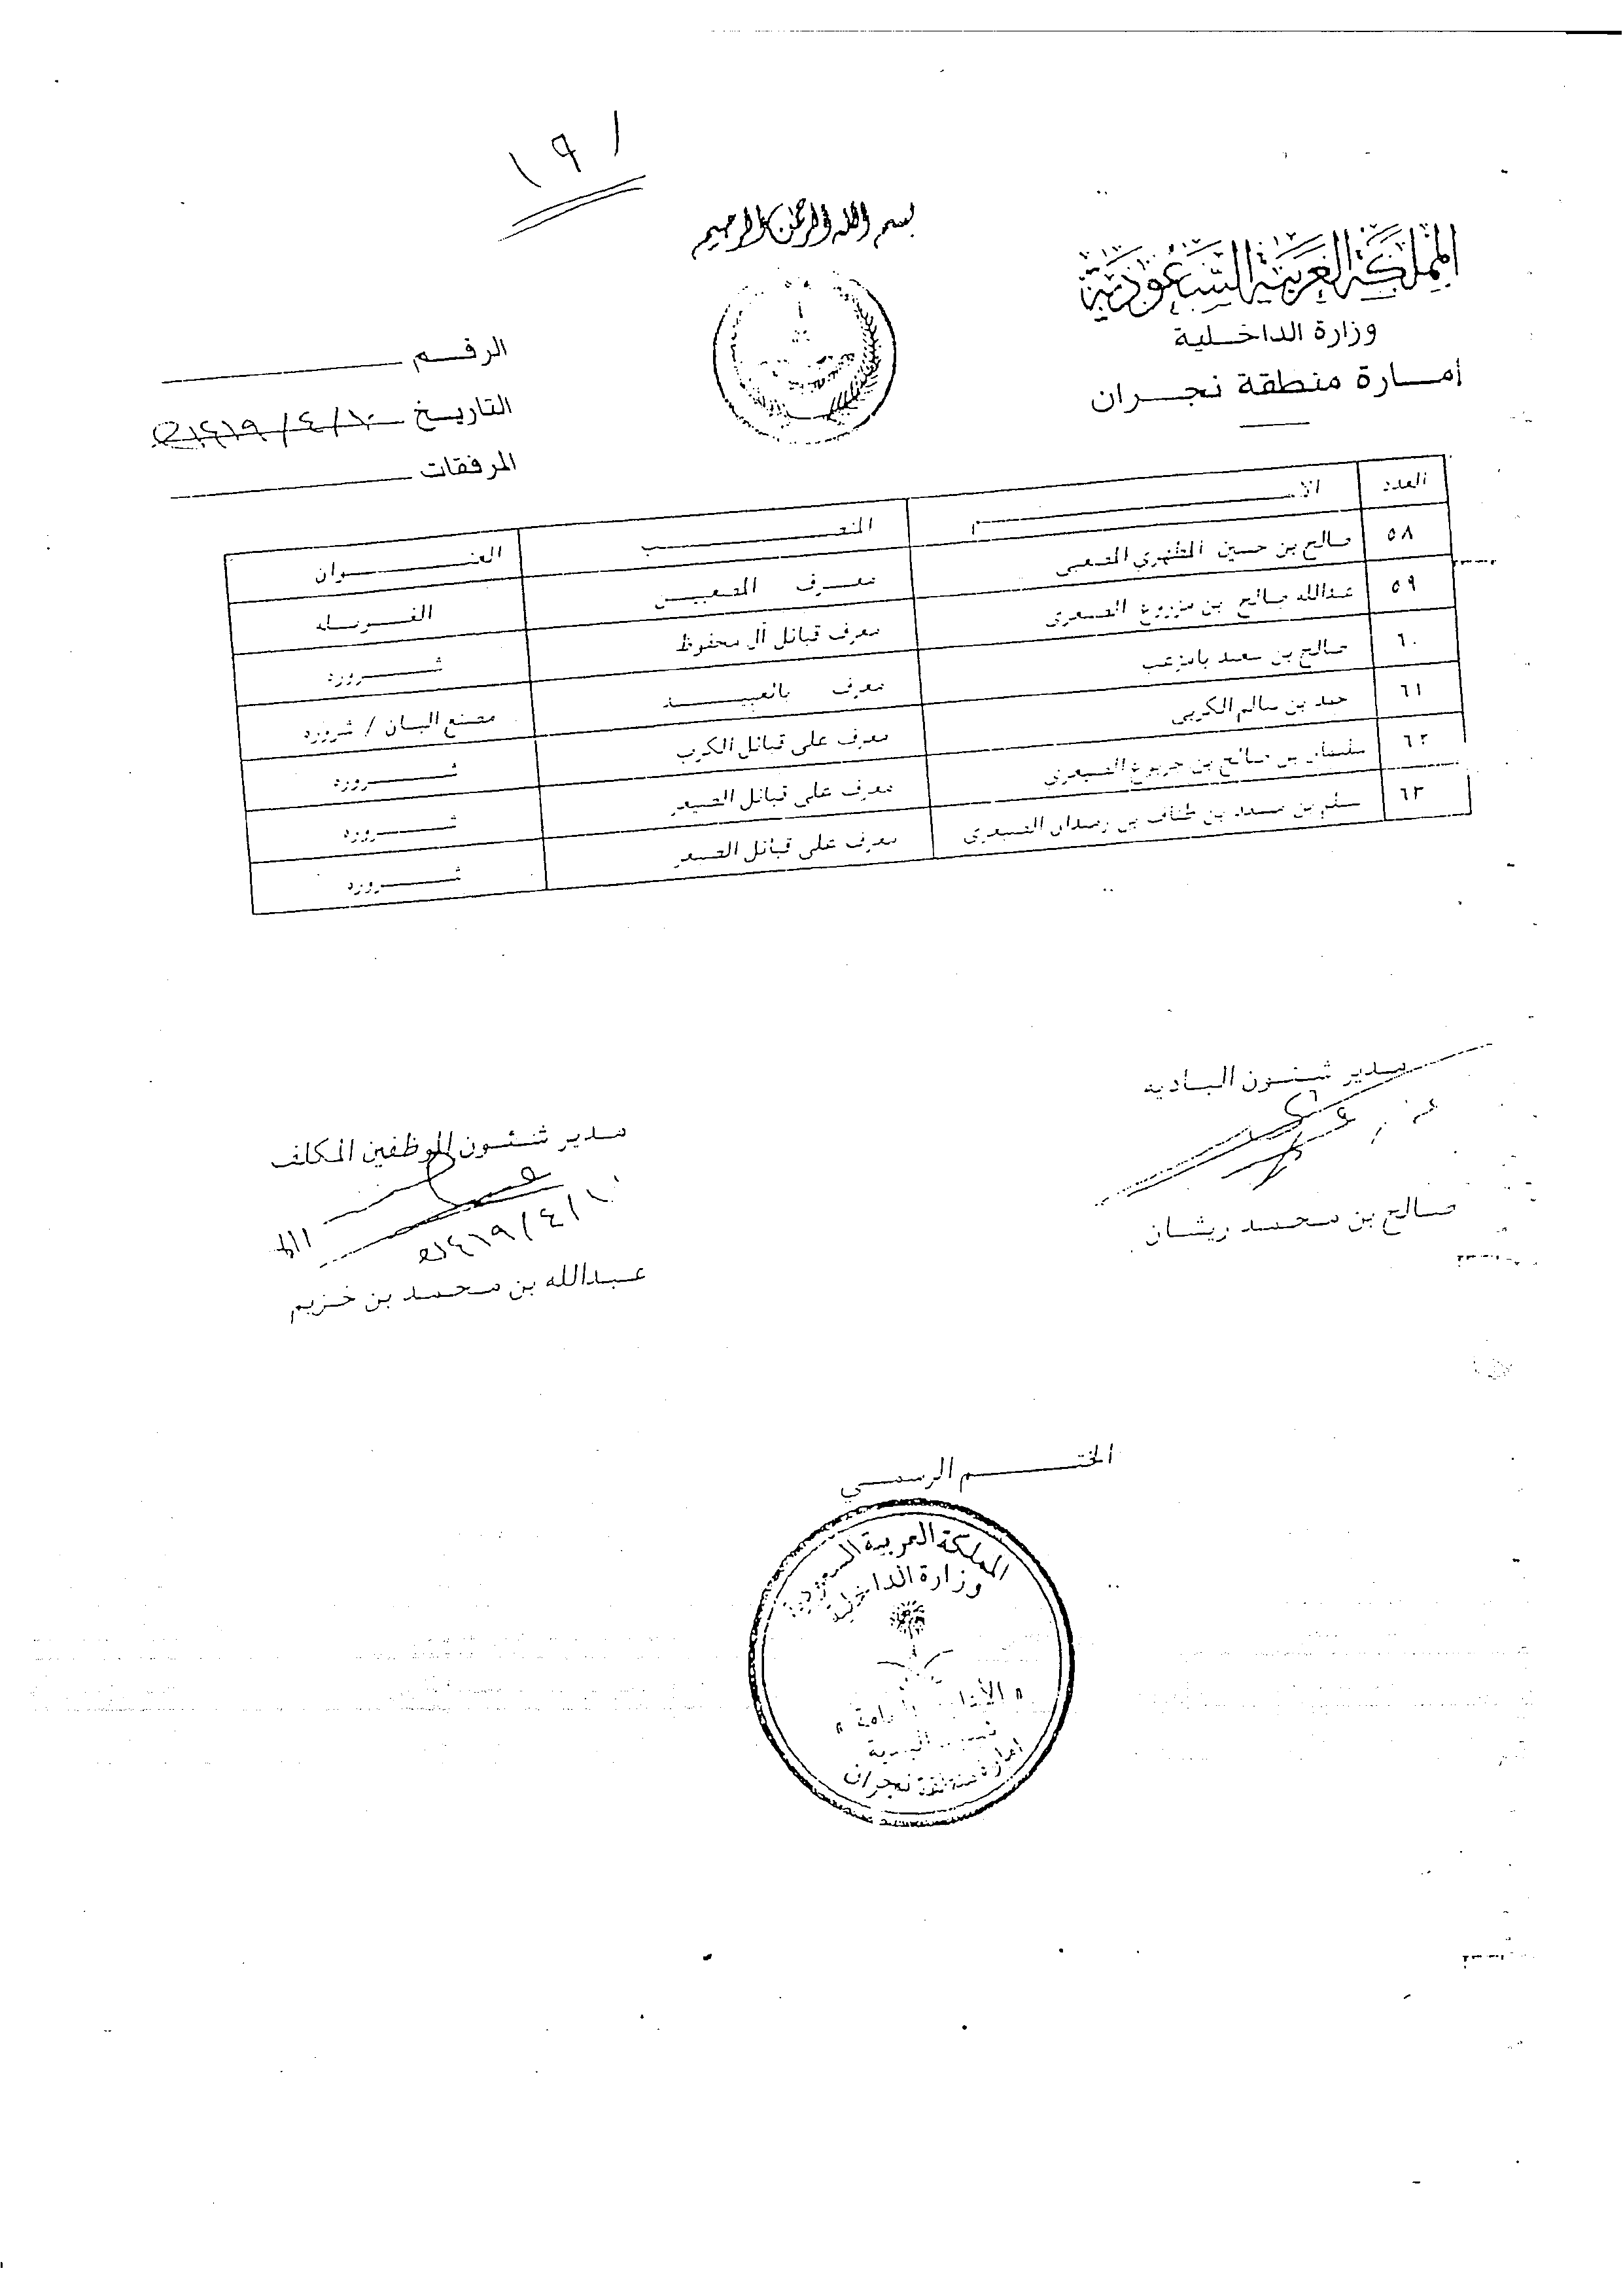 ١٩١
بسم الله الرحمن الرحيم
المملكة العربية السعودية
وزارة الداخلية
إمارة منطقة نجران
الرقم
التاريخ ١٠/٤/١٤١٩هـ
المرفقات
العدد الاسم المنصب العنوان
٥٨ صالح بن حسين المطهري المصعبي معرف المصعبين
٥٩ عبدالله صالح بن مزروع الصيعري معرف قبائل آل محفوظ شروره
٦٠ صالح بن سعيد معرف بالعبيد مصنع البان / شروره
٦١ حمد بن سالم الكربي معرف على قبائل الكرب شروره
٦٢ سليمان بن صالح بن جربوع الصيعري معرف على قبائل الصيعر شروره
٦٣ سالم بن بن الصيعري معرف على قبائل الصيعر شروره
مدير شئون الباديه
صالح بن محمد ريشان
مدير شئون الموظفين المكلف
١٠/٤/١٤١٩هـ
عبدالله بن محمد بن خزيم
الختم الرسمي
المملكة العربية السعودية
وزارة الداخلية
امارة منطقة نجران